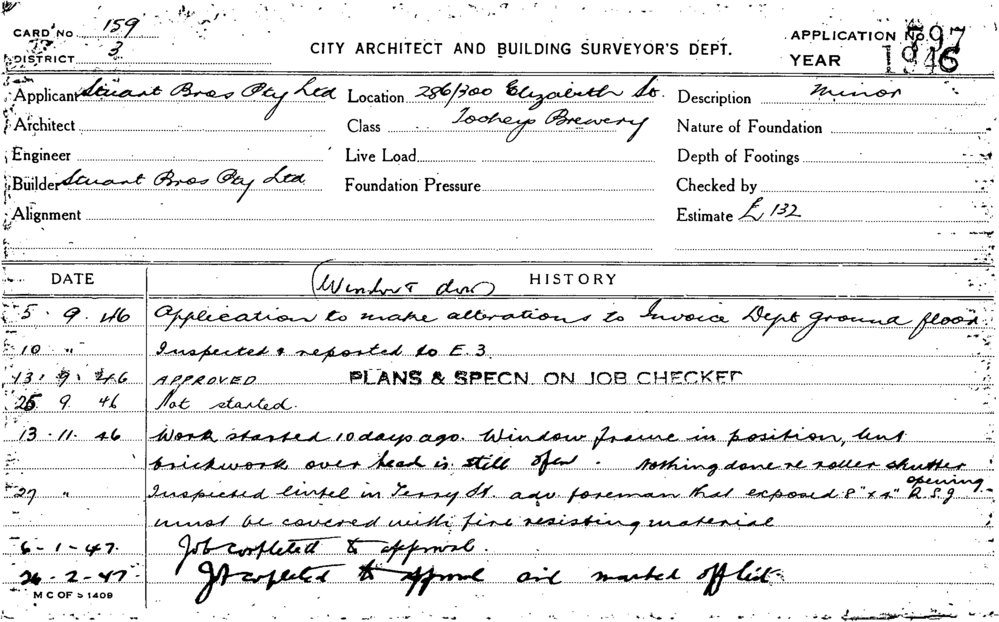 CARD No 159
DISTRICT 3
CITY ARCHITECT AND BUILDING SURVEYOR'S DEPT.
APPLICATION No 597
YEAR 1946
Applicant Stuart Bros Pty Ltd Location 286/300 Elizabeth St. Description Minor
Architect Class Tooheys Brewery Nature of Foundation
Engineer Live Load Depth of Footings
Builder Stuart Bros Pty Ltd. Foundation Pressure Checked by
Alignment Estimate £132
DATE HISTORY
(Window & door)
5. 9. 46 Application to make alterations to Invoice Dept ground floor
10 " Inspected & reported to E.3.
13. 9. 46 APPROVED PLANS & SPECN. ON JOB CHECKED
25 9 46 Not started.
13. 11. 46 Work started 10 days ago. Window frame in position, but
brickwork over head is still open. Nothing done re roller shutter
opening
27 " Inspected lintel in Terry St. adv foreman that exposed 8" x 4" R.S.J
must be covered with fire resisting material
6-1-47. Job completed to approval.
26-2-47. Job completed to approval and marked off list.
M C OF S 1409